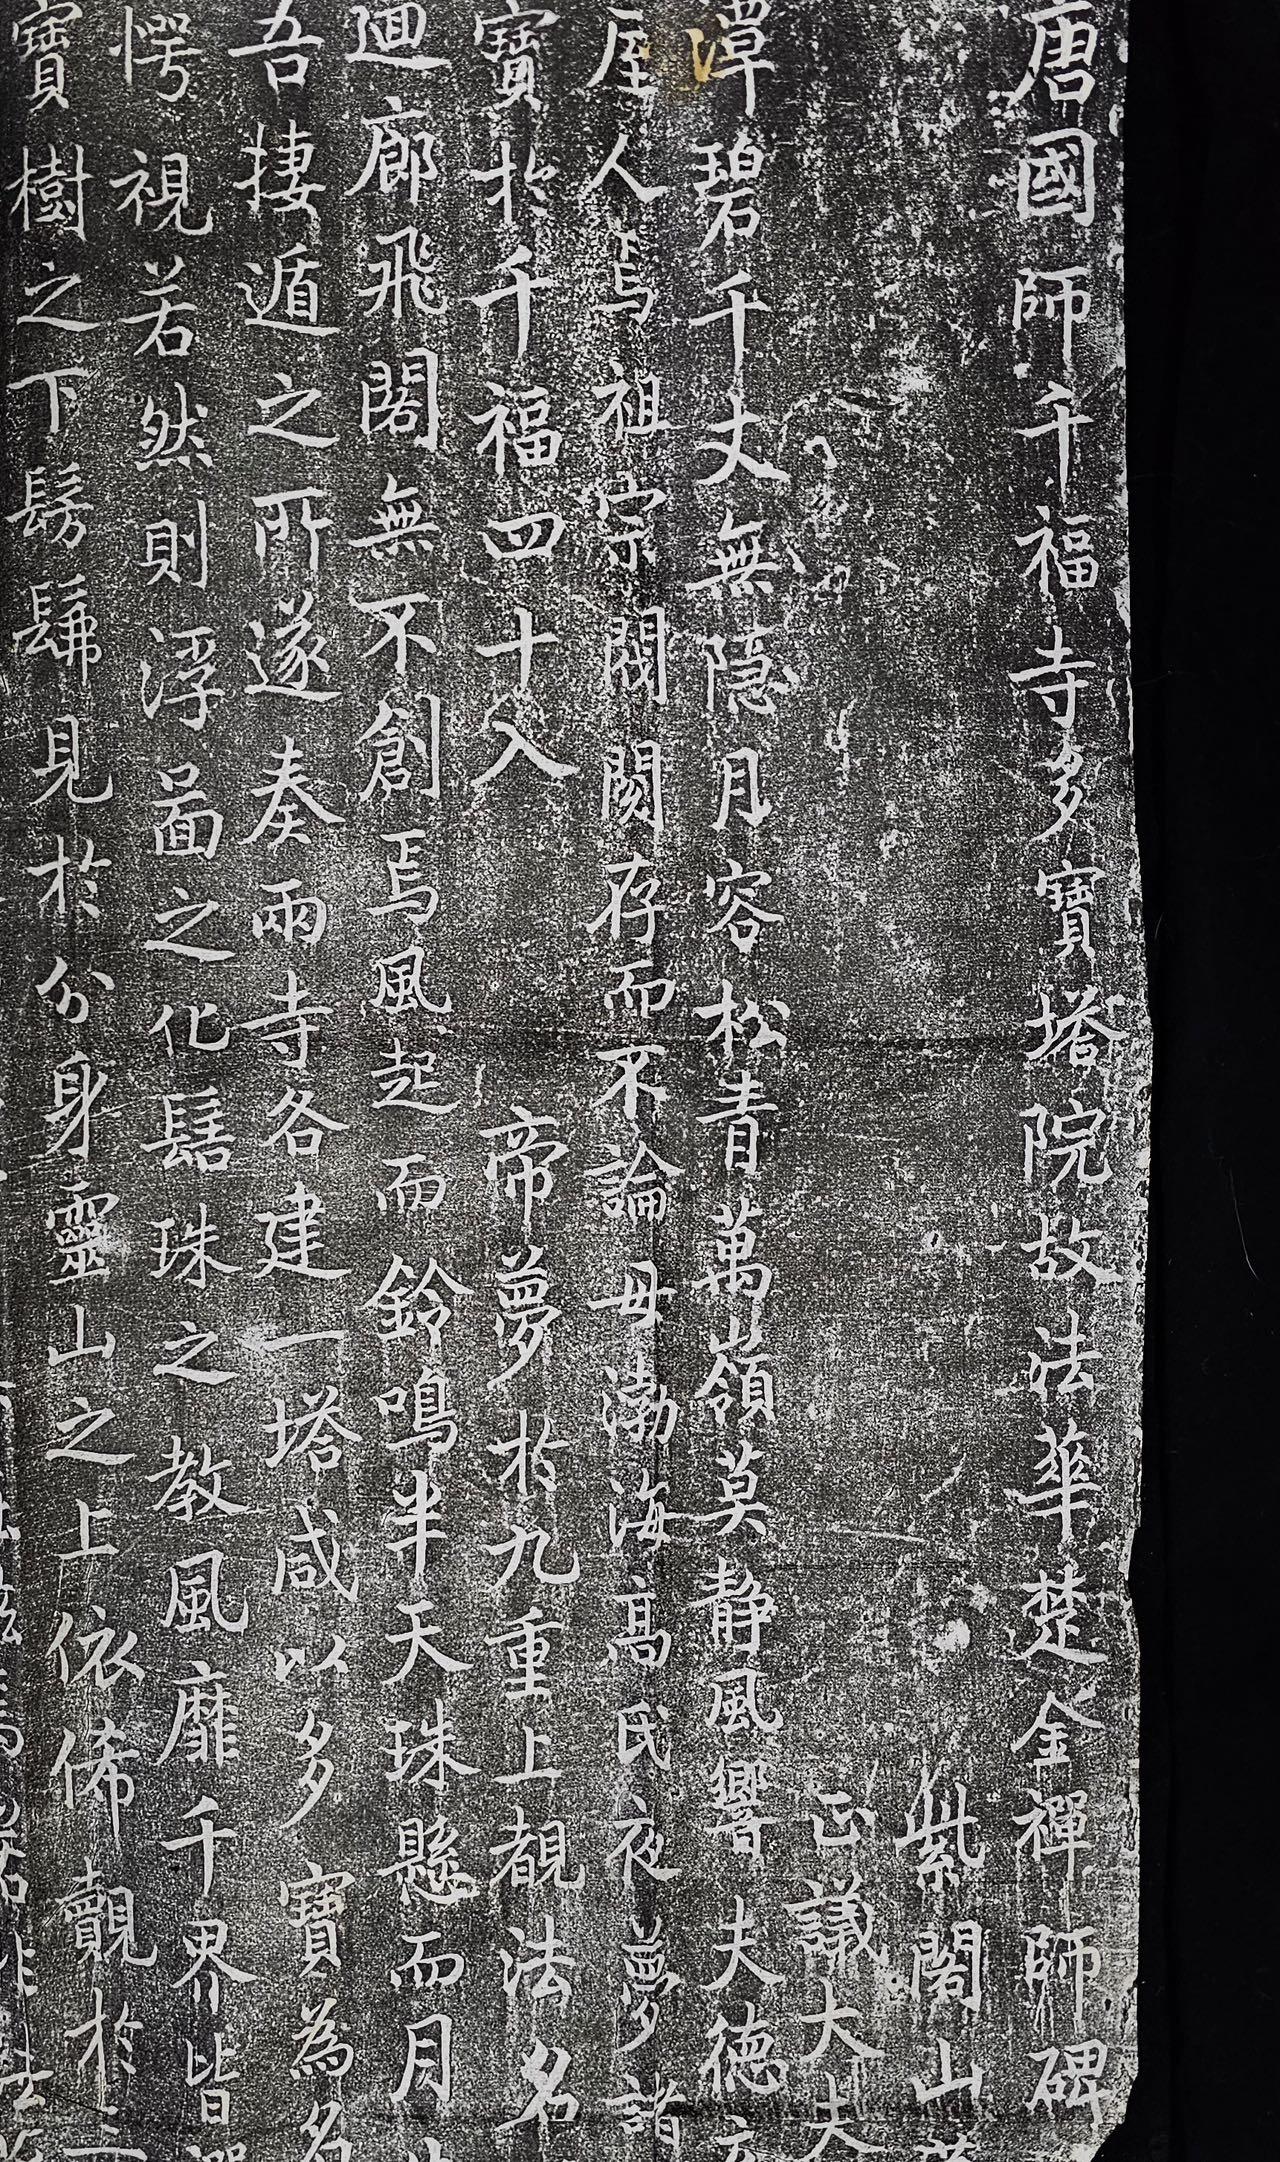 唐國師千福寺多寶塔院故法華楚金禪師碑
紫閣山草
正議大夫
潭碧千丈無隱月容松青萬嶺莫静風響夫德
厔人焉祖宗閥閱存而不論母渤海高氏夜夢諸
寶於千福四十入帝夢於九重上覩法名
迴廊飛閣無不創焉風起而鈴鳴半天珠懸而月
吾捿遁之所遂奏兩寺各建一塔咸以多寶為名
愕視若然則浮啚之化髻珠之教風靡千界皆
寶樹之下髣髴見於分身靈山之上依俙覿於三